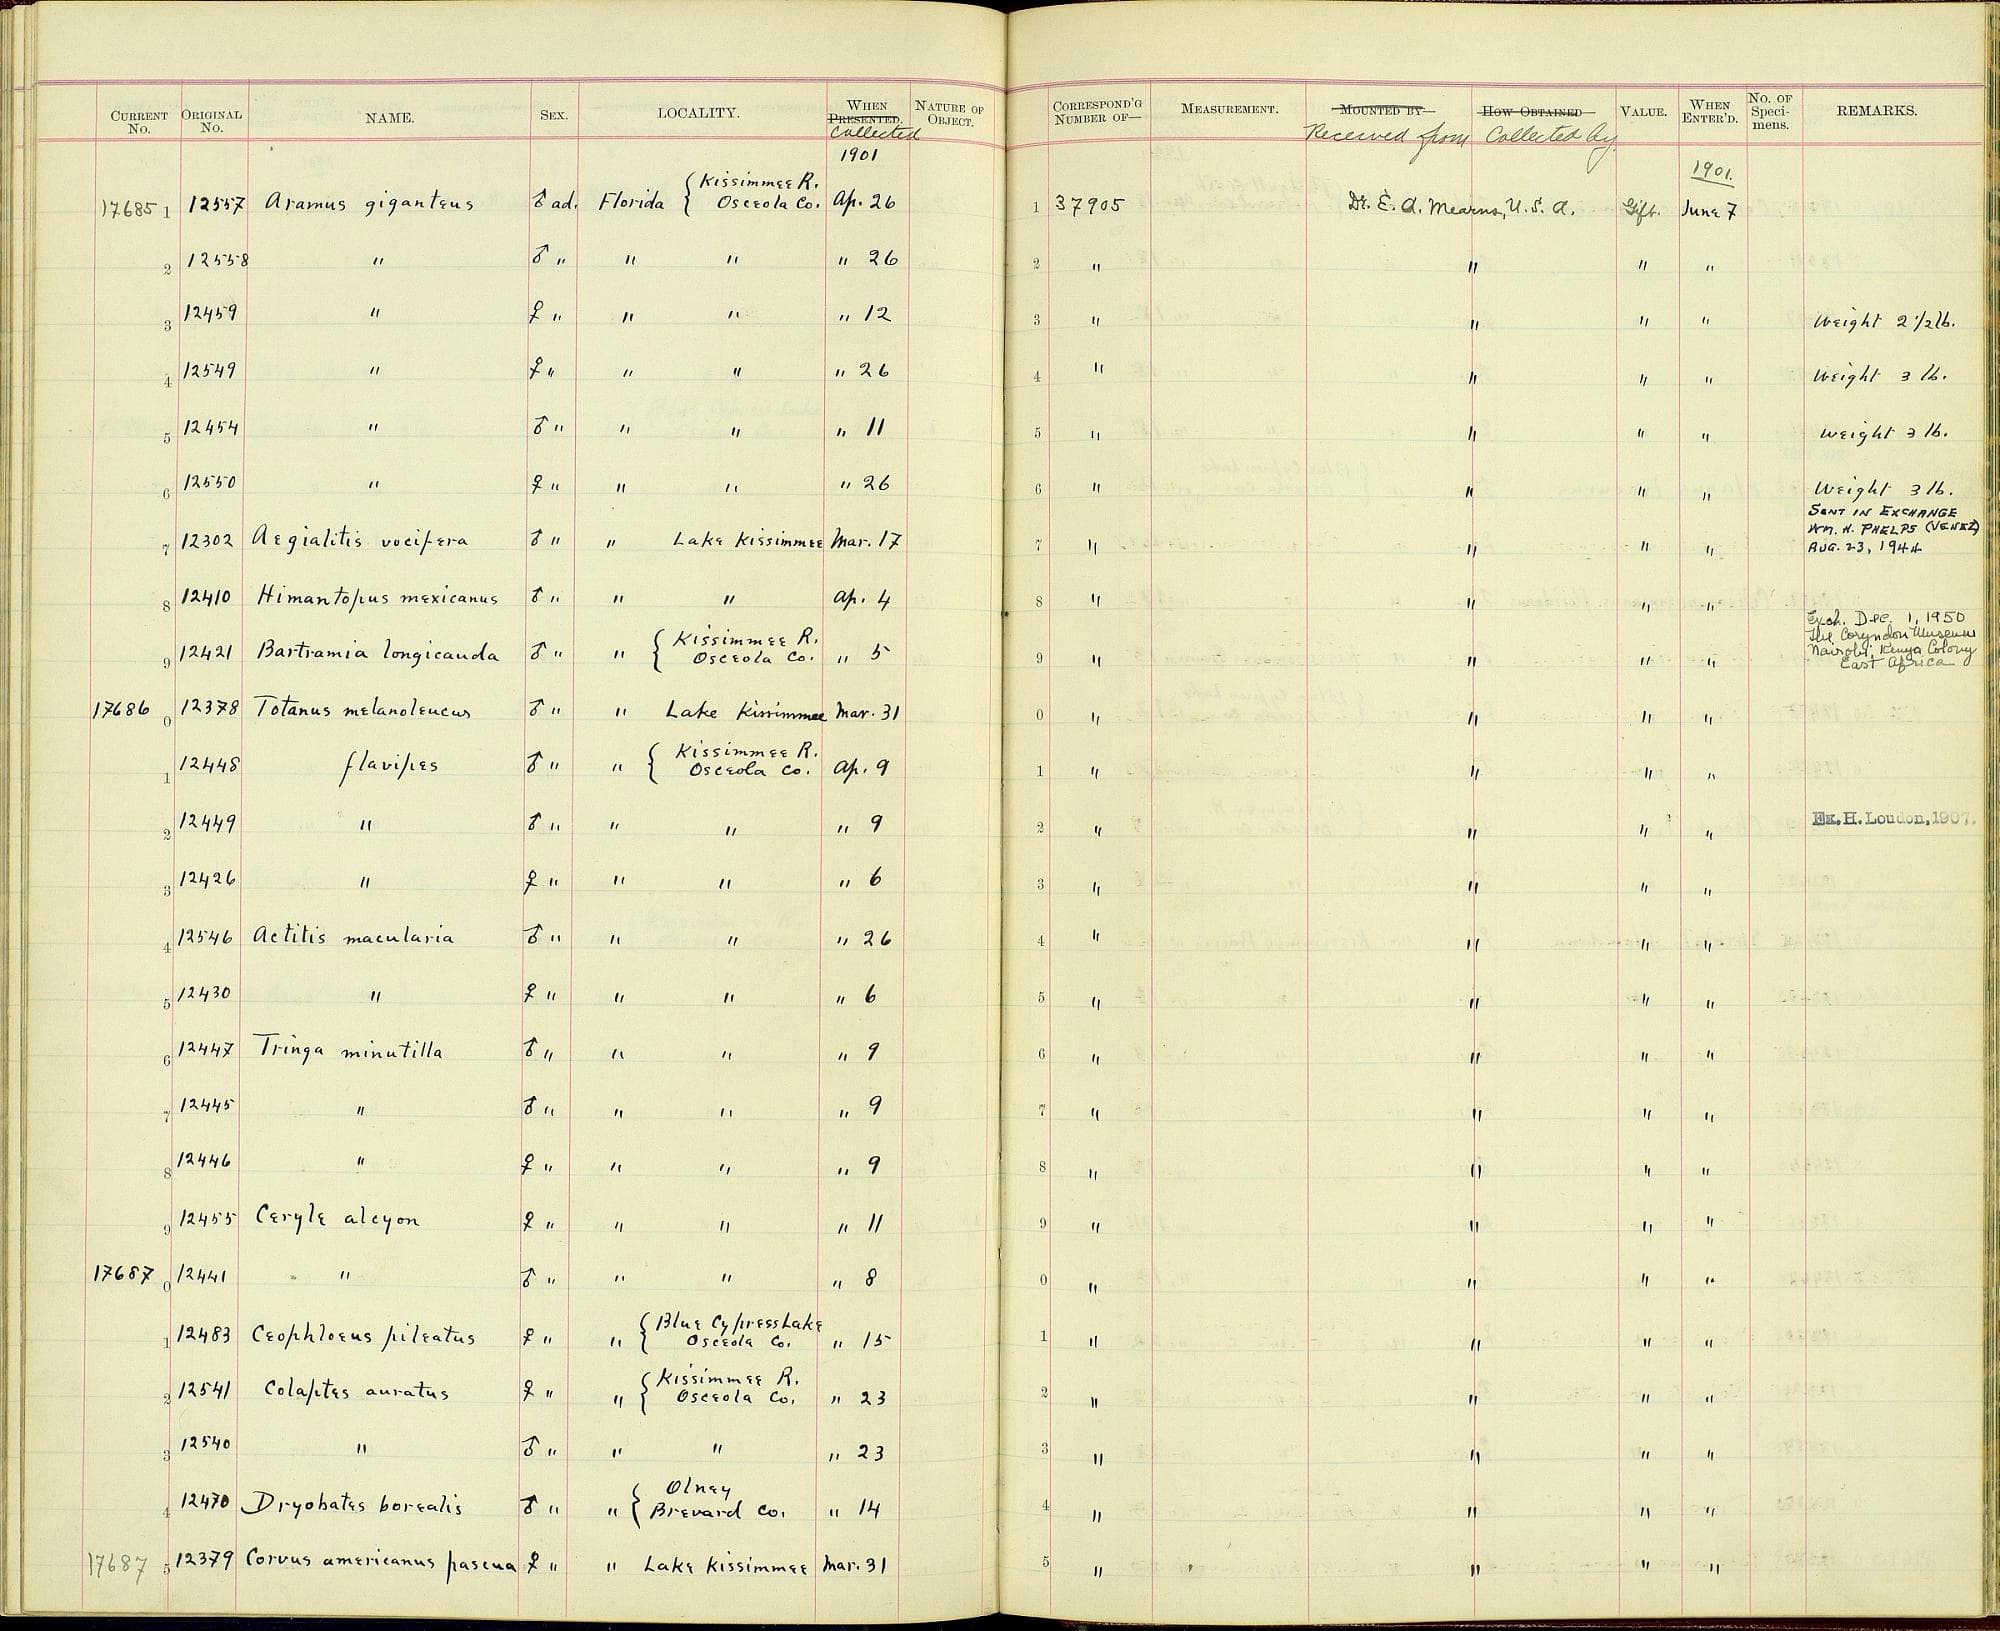 CURRENT No. ORIGINAL No. NAME. SEX. LOCALITY. WHEN PRESENTED. Collected NATURE OF OBJECT. CORRESPOND'G NUMBER OF— MEASUREMENT. MOUNTED BY Received from HOW OBTAINED Collected by VALUE. WHEN ENTER'D. No. OF Specimens. REMARKS.
1901 1901.
17685 1 12557 Aramus giganteus ♂ ad. Florida { Kissimmee R. Osceola Co. Ap. 26 1 37905 Dr. E. A. Mearns, U.S.A. Gift. June 7
2 12558 " ♂ " " " " 26 2 " " " "
3 12459 " ♀ " " " " 12 3 " " " " Weight 2 1/2 lb.
4 12549 " ♀ " " " " 26 4 " " " " Weight 3 lb.
5 12454 " ♂ " " " " 11 5 " " " " Weight 3 lb.
6 12550 " ♀ " " " " 26 6 " " " " Weight 3 lb.
7 12302 Aegialitis vocifera ♂ " " Lake Kissimmee Mar. 17 7 " " " " SENT IN EXCHANGE WM. H. PHELPS (VENEZ) AUG. 23, 1944
8 12410 Himantopus mexicanus ♂ " " " Ap. 4 8 " " " "
9 12421 Bartramia longicauda ♂ " " { Kissimmee R. Osceola Co. " 5 9 " " " " Exch. Dec. 1, 1950 The Coryndon Museum Nairobi, Kenya Colony East Africa
17686 0 12378 Totanus melanoleucus ♂ " " Lake Kissimmee Mar. 31 0 " " " "
1 12448 flavipes ♂ " " { Kissimmee R. Osceola Co. Ap. 9 1 " " " "
2 12449 " ♂ " " " " 9 2 " " " " Ex. H. Loudon, 1907.
3 12426 " ♀ " " " " 6 3 " " " "
4 12546 Actitis macularia ♂ " " " " 26 4 " " " "
5 12430 " ♀ " " " " 6 5 " " " "
6 12447 Tringa minutilla ♂ " " " " 9 6 " " " "
7 12445 " ♂ " " " " 9 7 " " " "
8 12446 " ♀ " " " " 9 8 " " " "
9 12455 Ceryle alcyon ♀ " " " " 11 9 " " " "
17687 0 12441 " ♂ " " " " 8 0 " " " "
1 12483 Ceophloeus pileatus ♀ " " { Blue Cypress Lake Osceola Co. " 15 1 " " " "
2 12541 Colaptes auratus ♀ " " { Kissimmee R. Osceola Co. " 23 2 " " " "
3 12540 " ♂ " " " " 23 3 " " " "
4 12470 Dryobates borealis ♂ " " { Olney Brevard Co. " 14 4 " " " "
17687 5 12379 Corvus americanus pascua ♀ " " Lake Kissimmee Mar. 31 5 " " " "